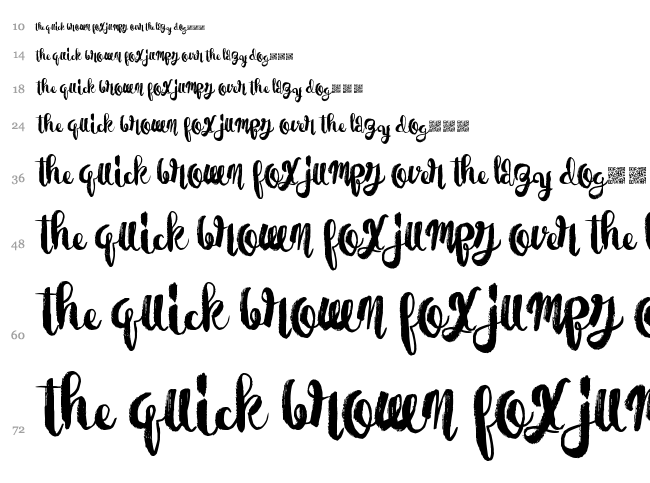 10 the quick brown fox jumps over the lazy dog
14 the quick brown fox jumps over the lazy dog
18 the quick brown fox jumps over the lazy dog
24 the quick brown fox jumps over the lazy dog
36 the quick brown fox jumps over the lazy dog
48 the quick brown fox jumps over the l
60 the quick brown fox jumps o
72 the quick brown fox jum